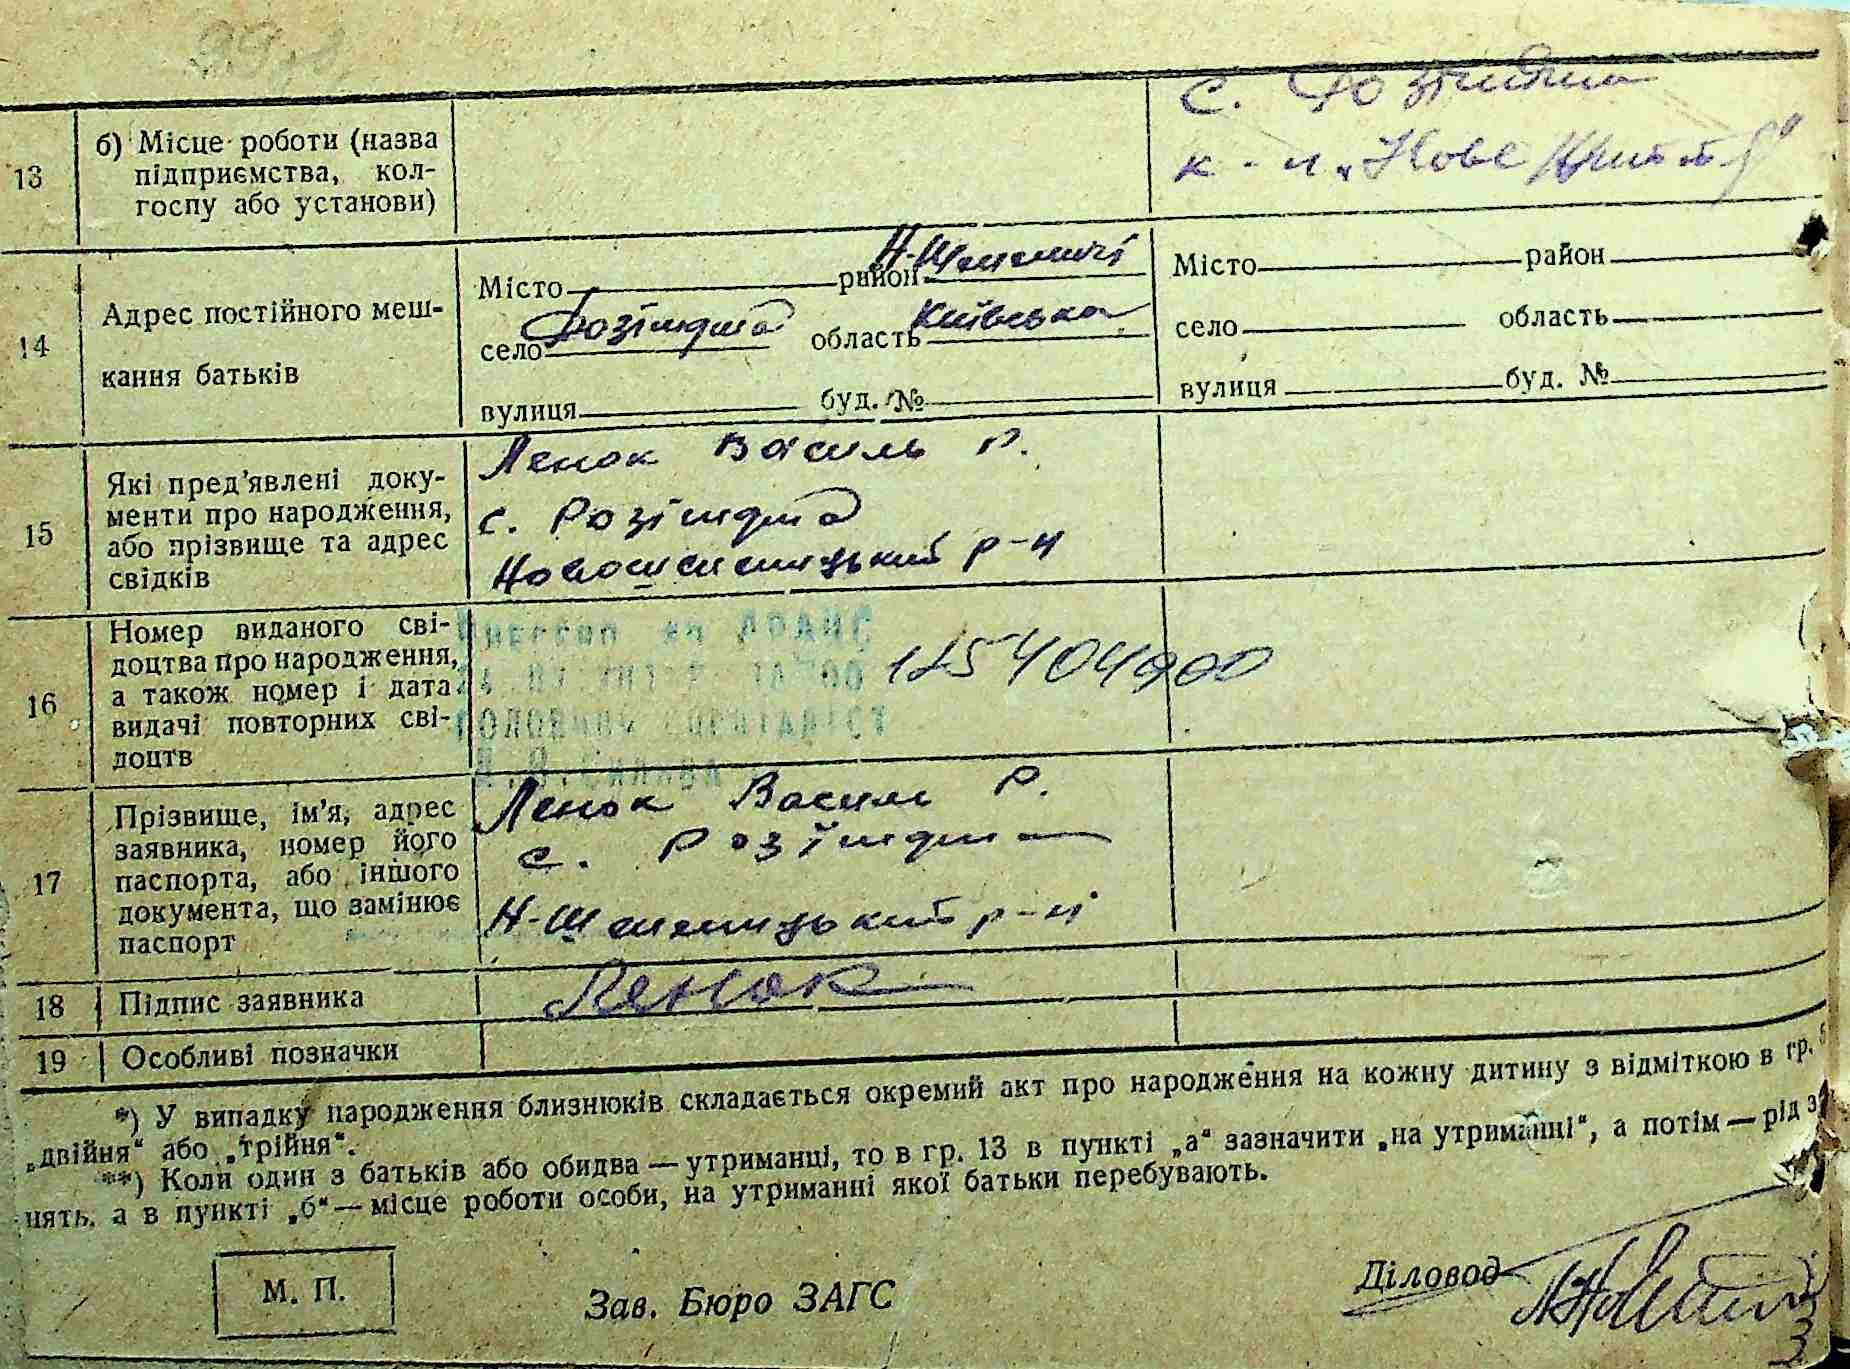 с. Розїжджа
к-п „Нове Життя"
13
б) Місце роботи (назва
підприємства, кол-
госпу або установи)
14
Адрес постійного меш-
кання батьків
Місто район Н-Шепеличі
село Розїжджа область Київська
вулиця буд. №
Місто район
село область
вулиця буд. №
15
Які пред'явлені доку-
менти про народження,
або прізвище та адрес
свідків
Ленок Василь Р.
с. Розїжджа
Новошепелицький р-н
16
Номер виданого сві-
доцтва про народження,
а також номер і дата
видачі повторних сві-
доцтв
17
Прізвище, ім'я, адрес
заявника, номер його
паспорта, або іншого
документа, що замінює
паспорт
Ленок Василь Р.
с. Розїжджа
Н-Шепелицький р-н
18
Підпис заявника
Ленок
19
Особливі позначки
*) У випадку народження близнюків складається окремий акт про народження на кожну дитину з відміткою в гр. 5
„двійня“ або „трійня“.
**) Коли один з батьків або обидва — утриманці, то в гр. 13 в пункті „а“ зазначити „на утриманні“, а потім — рід з
нять, а в пункті „б“ — місце роботи особи, на утриманні якої батьки перебувають.
М. П.
Зав. Бюро ЗАГС
Діловод